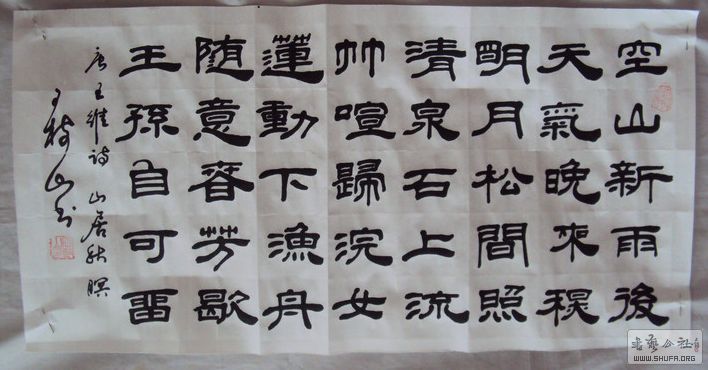 空山新雨後
天氣晚來秋
明月松間照
清泉石上流
竹喧歸浣女
蓮動下漁舟
随意春芳歇
王孫自可留
唐王維詩 山居秋暝
王樹山書
書藝公社
WWW.SHUFA.ORG